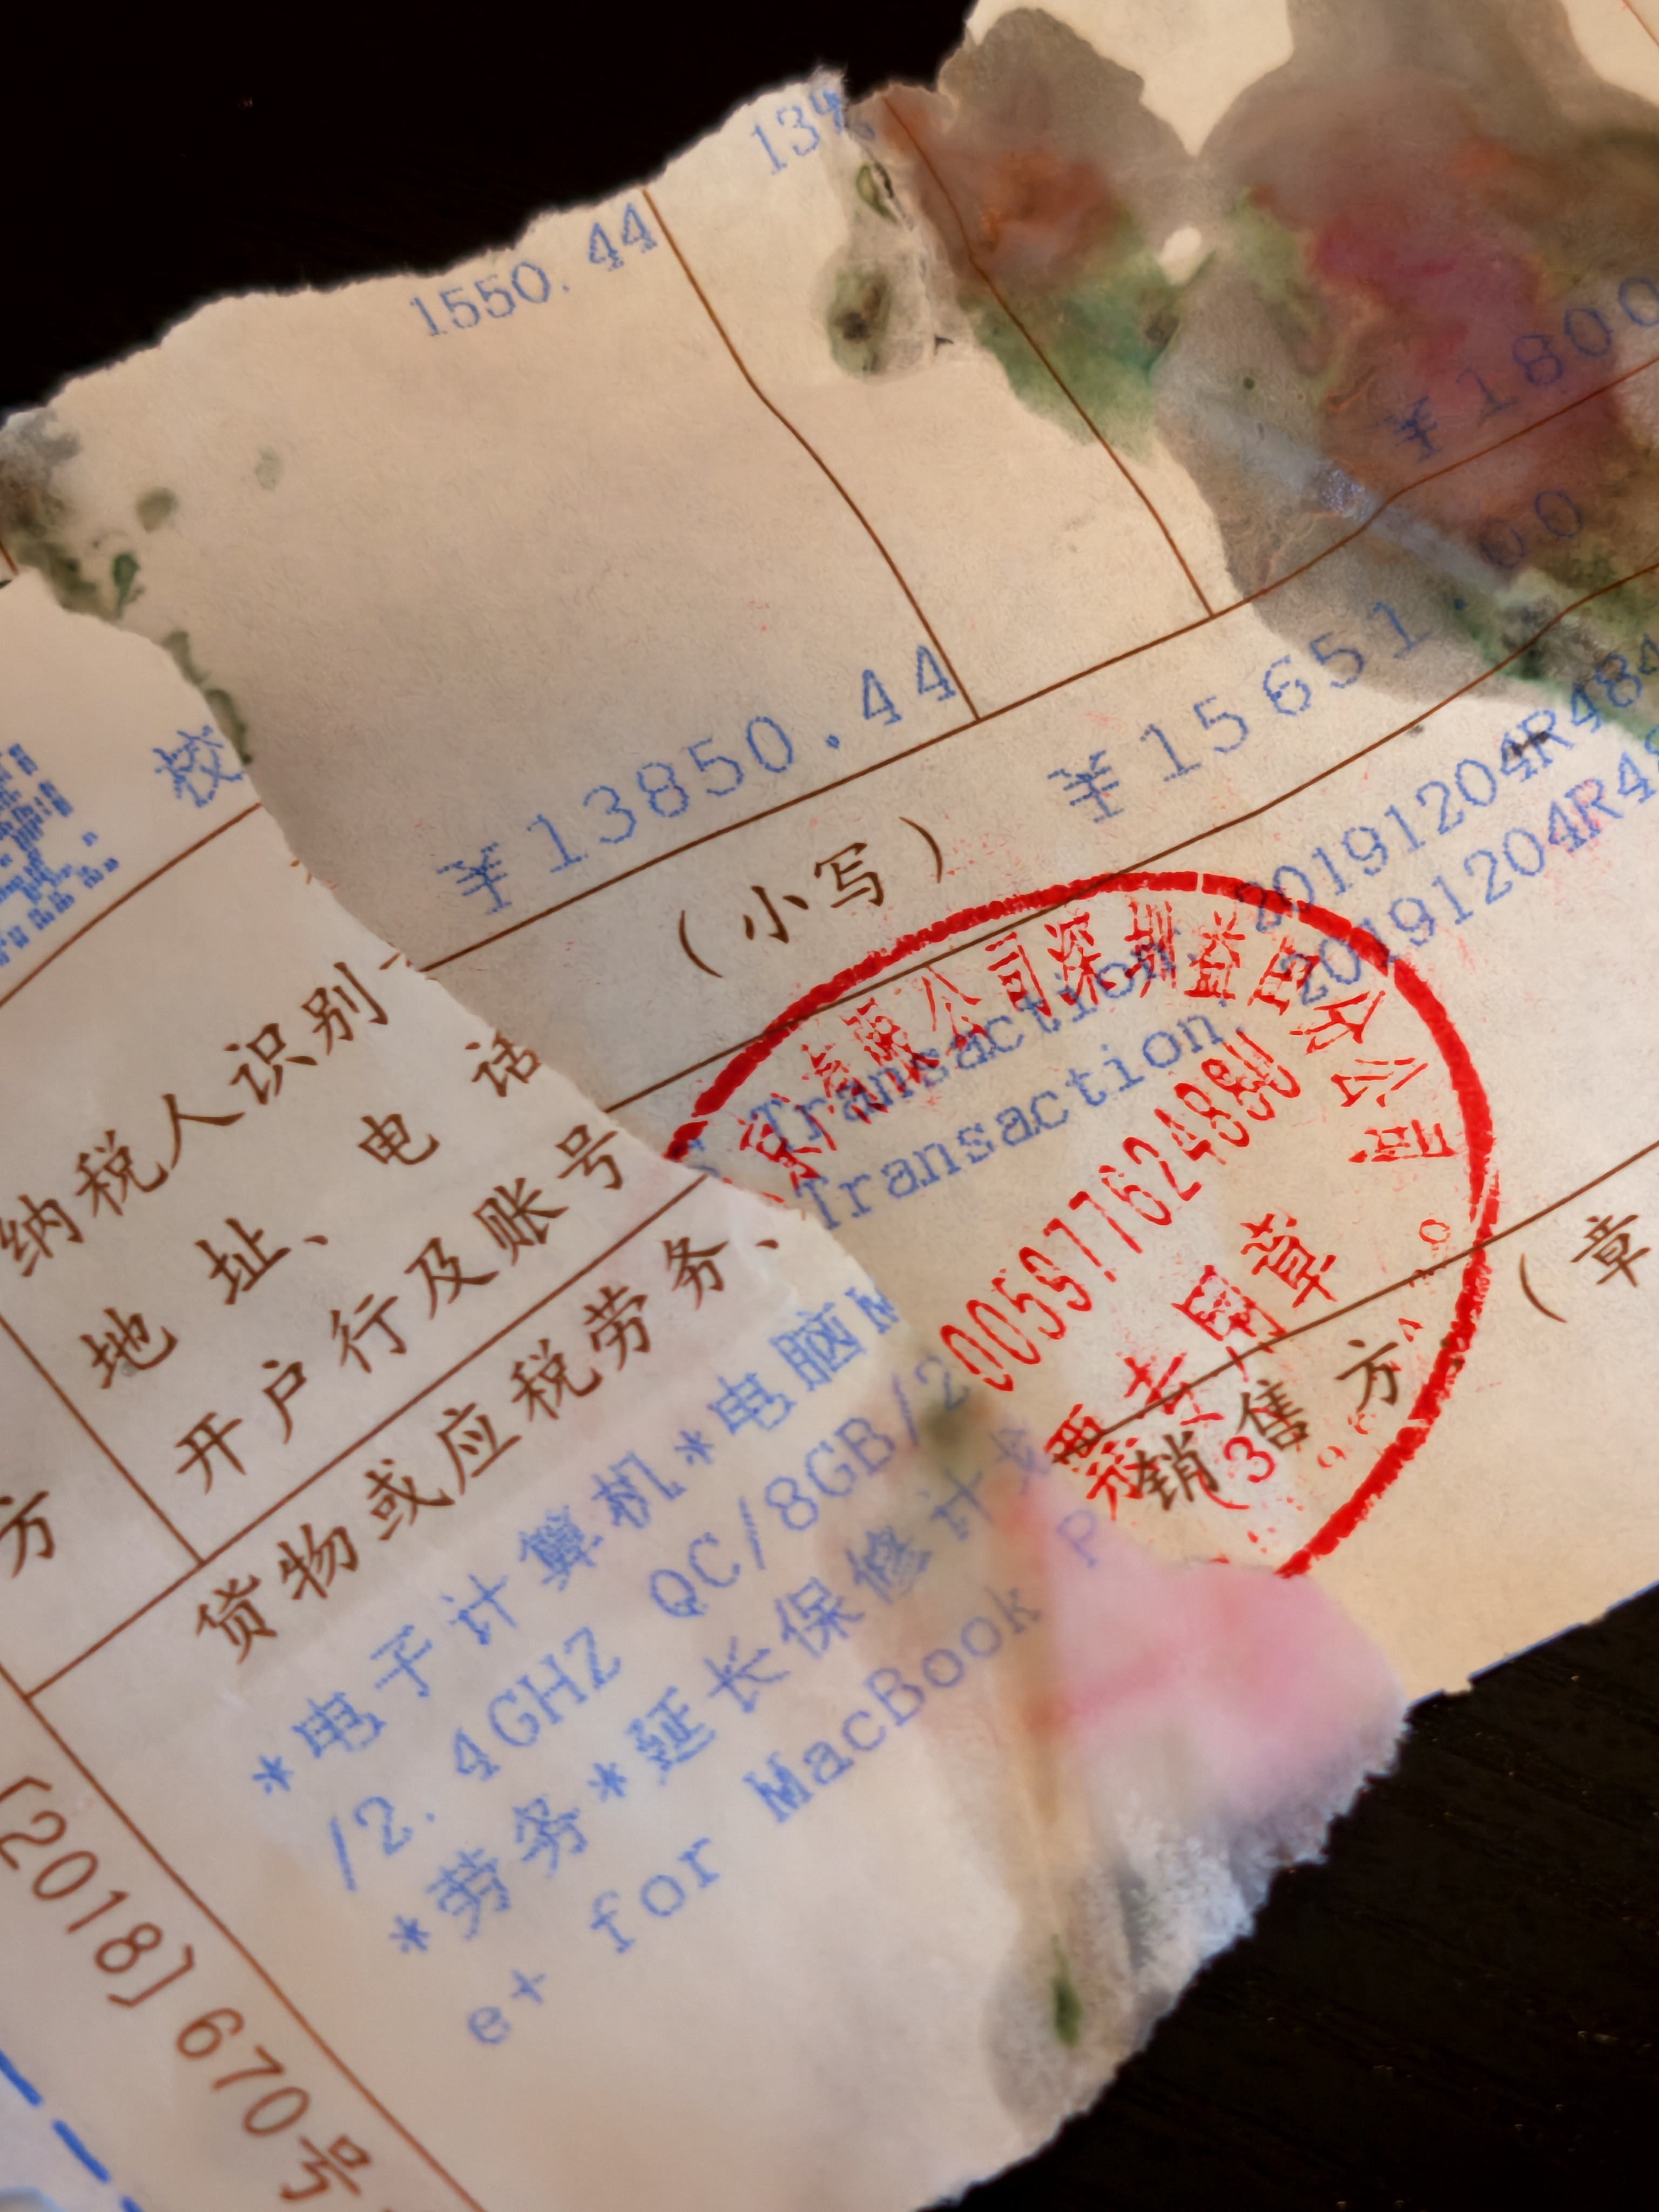 13%
1550.44
¥1800
¥13850.44
(小写) ¥15651.00
校
纳税人识别
地址、电话
开户行及账号
方
货物或应税劳务、
*电子计算机*电脑M
/2.4GHZ QC/8GB/2
*劳务*延长保修计划
e+ for MacBook P
Transaction: 20191204R484
Transaction: 20191204R48
有限公司深圳益田分公司
005977624889U
票专用章
(3
销售方
(章
[2018]670号